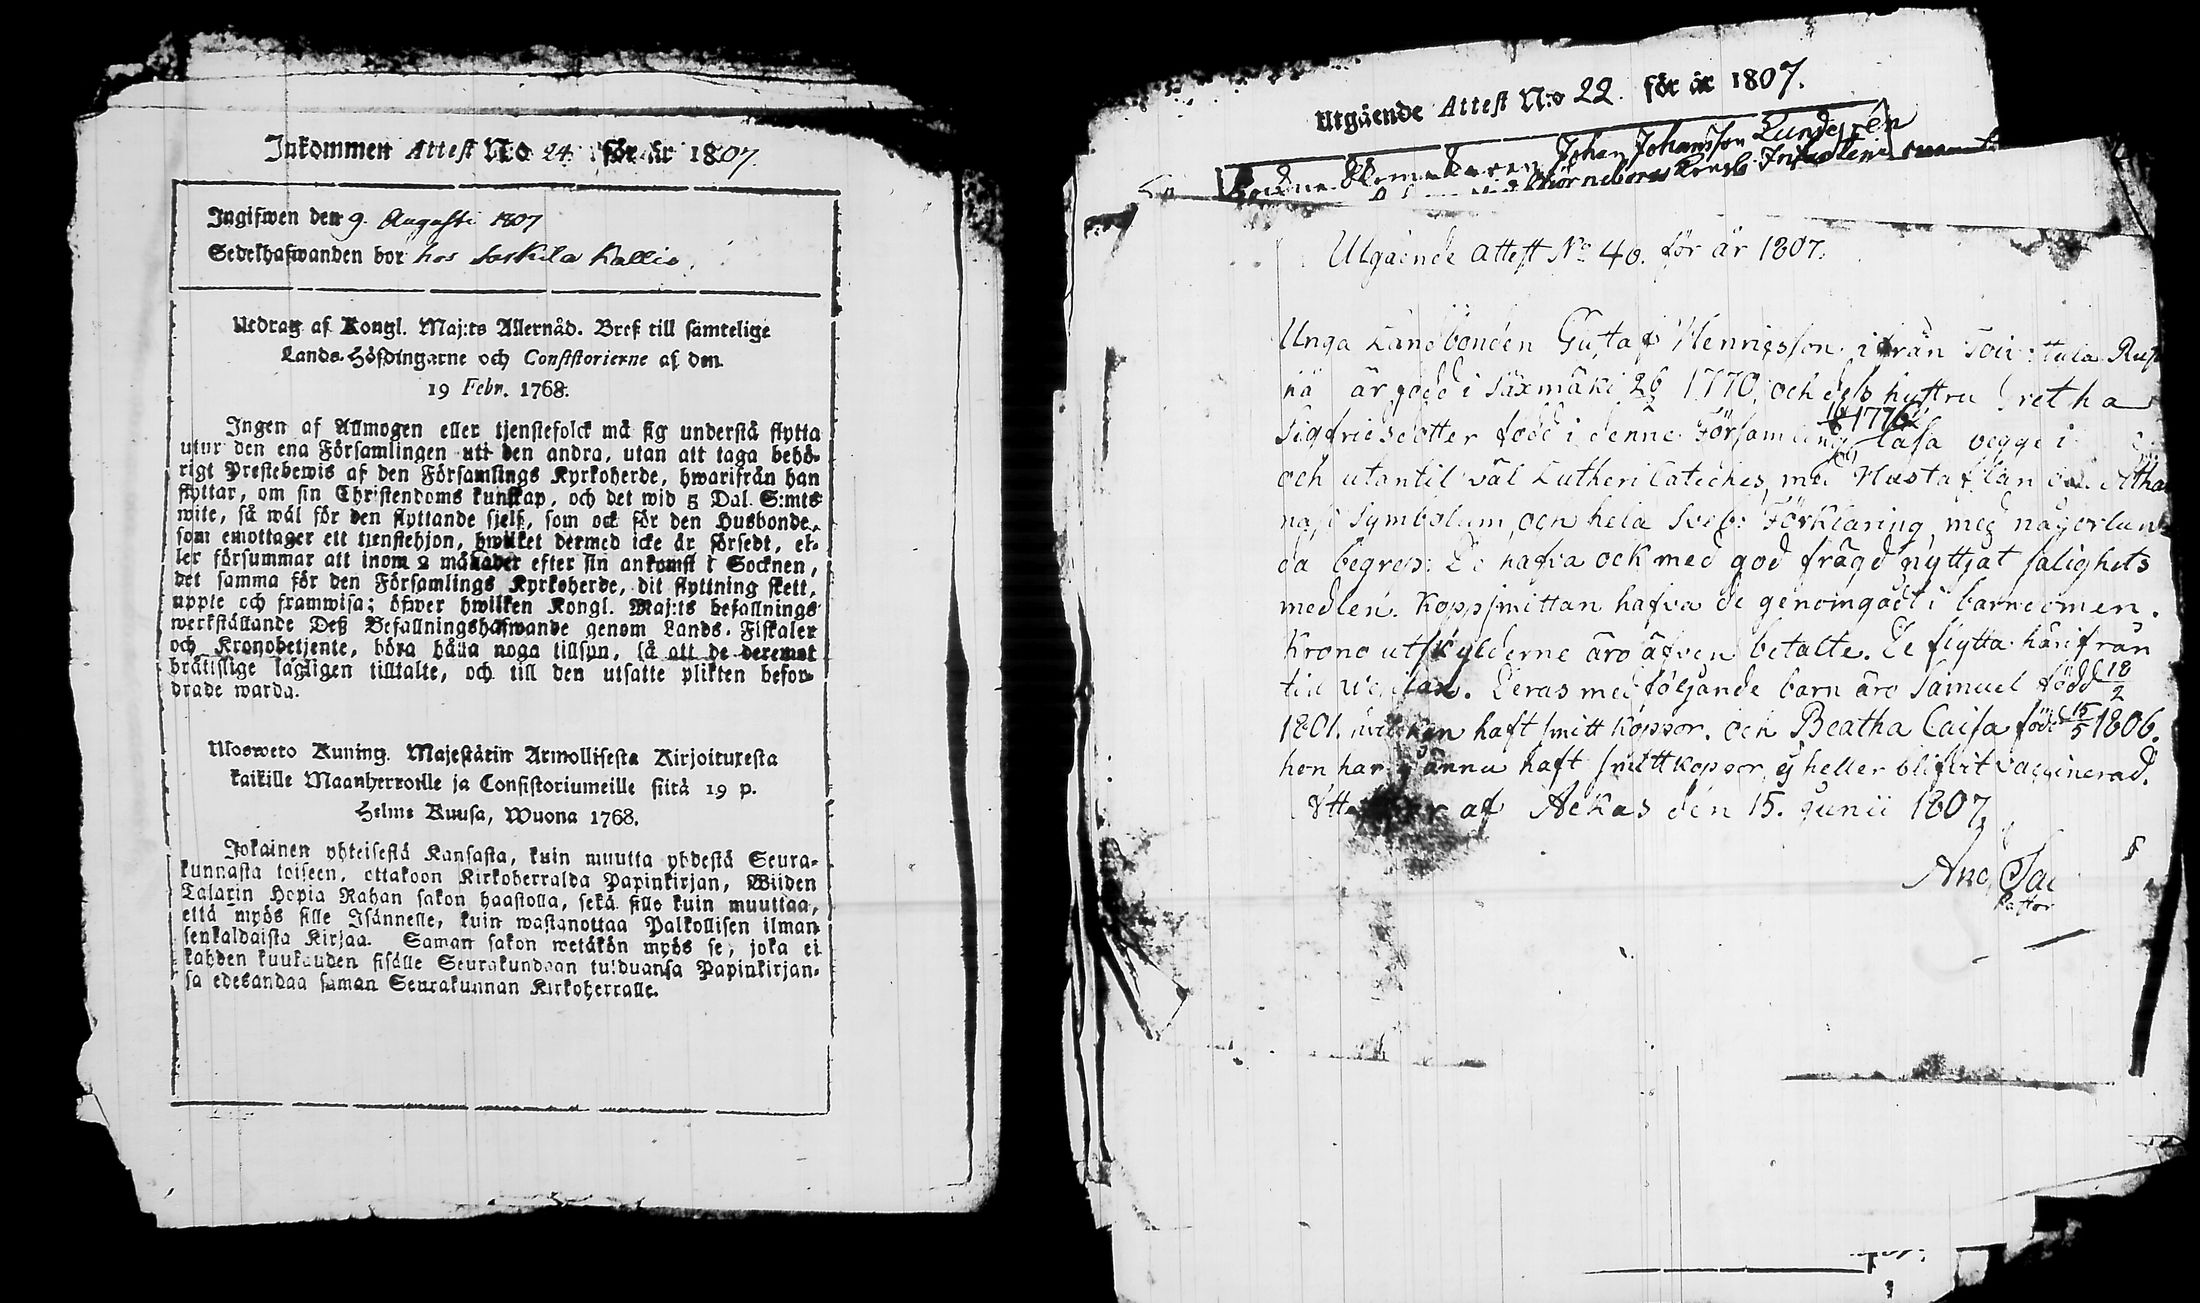 Inkommen Attest No 24. för år 1807.
Ingifwen den 9. Augusti 1807
Sedelhafwanden bor hos Kallio
Utdrag af Kongl. Maj:ts Allernåd. Bref till samtelige
Lands-Höfdingarne och Consistorierne af den
19 Febr. 1768.
Ingen af Allmogen eller tjenstefolck må sig understå flytta
utur den ena Församlingen utt den andra, utan att taga behö-
rigt Prestebewis af den Församlings Kyrkoherde, hwarifrån han
flyttar, om sin Christendoms kunskap, och det wid 5 Dal. S:mts
wite, så wäl för den flyttande sjelf, som ock för den Husbonde,
som emottager ett tjenstehjon, hwilket dermed icke är försedt, el-
ler försummar att inom 2 månader efter sin ankomst i Socknen,
det samma för den Församlings Kyrkoherde, dit flyttning skett,
uppte och framwisa; öfwer hwilken Kongl. Maj:ts befallnings
werkställande Deß Befallningshafwande genom Lands-Fiskaler
och Kronobetjente, böra hålla noga tillsyn, så att de deremot
brätislige lagligen tilltalte, och till den utsatte plikten befor-
drade warda.
Uloswето Kuning. Majestätin Armollisesta Kirjoituxesta
kaikille Maanherroille ja Consistoriumeille siitä 19 p.
Helme Kuusa, Wuona 1768.
Jokainen yhteisestä Kansasta, kuin muutta yhdestä Seura-
kunnasta toiseen, ottakoon Kirkoherralda Papinkirjan, Wiiden
Talarin Hopia Rahan sakon haastolla, sekä sille kuin muuttaa,
että myös sille Isännelle, kuin wastanottaa Palkollisen ilman
senkaldaista Kirjaa. Saman sakon wetäkön myös se, joka ei
kahden kuukauden sisälle Seurakundaan tulduansa Papinkirjan-
sa edesandaa saman Seurakunnan Kirkoherralle.
Utgående Attest N:o 22. för år 1807.
Johan Johansson Lundgren
Utgående attest No 40. för år 1807.
Unga Landbonden Gustaf Henricsson ifrån
nä är född i Saxmäki 1770, och dels hustru Gretha
Sigfriedsdotter född i denne Församling 1776 läsa begge i
och utantil väl Lutheri Cateches, med Hustaflan och Atha
nasii Symbolum, och hela Sveb: Förklaring, med någorlun
da begrep. De hafva ock med god frägd nyttjat salighets
medlen. Koppsmittan hafva de genomgådt i barndomen.
Krono utskylderne äro äfven betalte. De flytta härifrån
til. Deras medföljande barn äro Samuel född 18/2
1801. hvilken haft smittkoppor. och Beatha Caisa född 15/5 1806.
hon har ej ännu haft smittkoppor ej heller blifvit vaccinerad.
af Ackas den 15. Junii 1807
Pastor